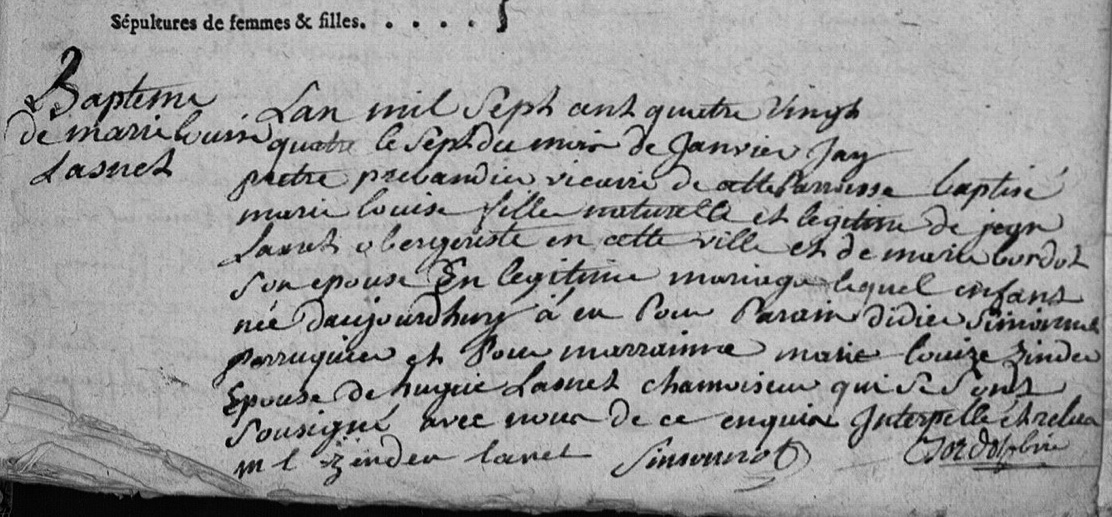 Sépultures de femmes & filles. . . . . . }
Bapteme
de marie louise
Lasnet
Lan mil Sept cent quatre vingt
quatre le Sept du mois de Janvier Jay
pretre prebandier vicaire de cette Parroisse baptisé
marie louise fille naturelle et legitime de jean
Lasnet obergeriste en cette ville et de marie bordot
son epouse En legitime mariage lequel enfant
née daujourdhuy á eu Pour Parain didier Simonnot
perruquier et Pour marrainne marie louize Zinder
Epouse de hugue Lasnet chamoiseur qui se sont
sousigné avec nous de ce enquis Interpellé et relu
m l zinder lanet Simonnot